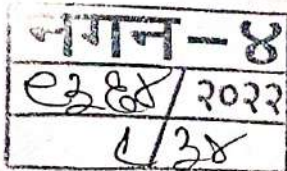 नगन-४
९३६४/२०२२
१/३४